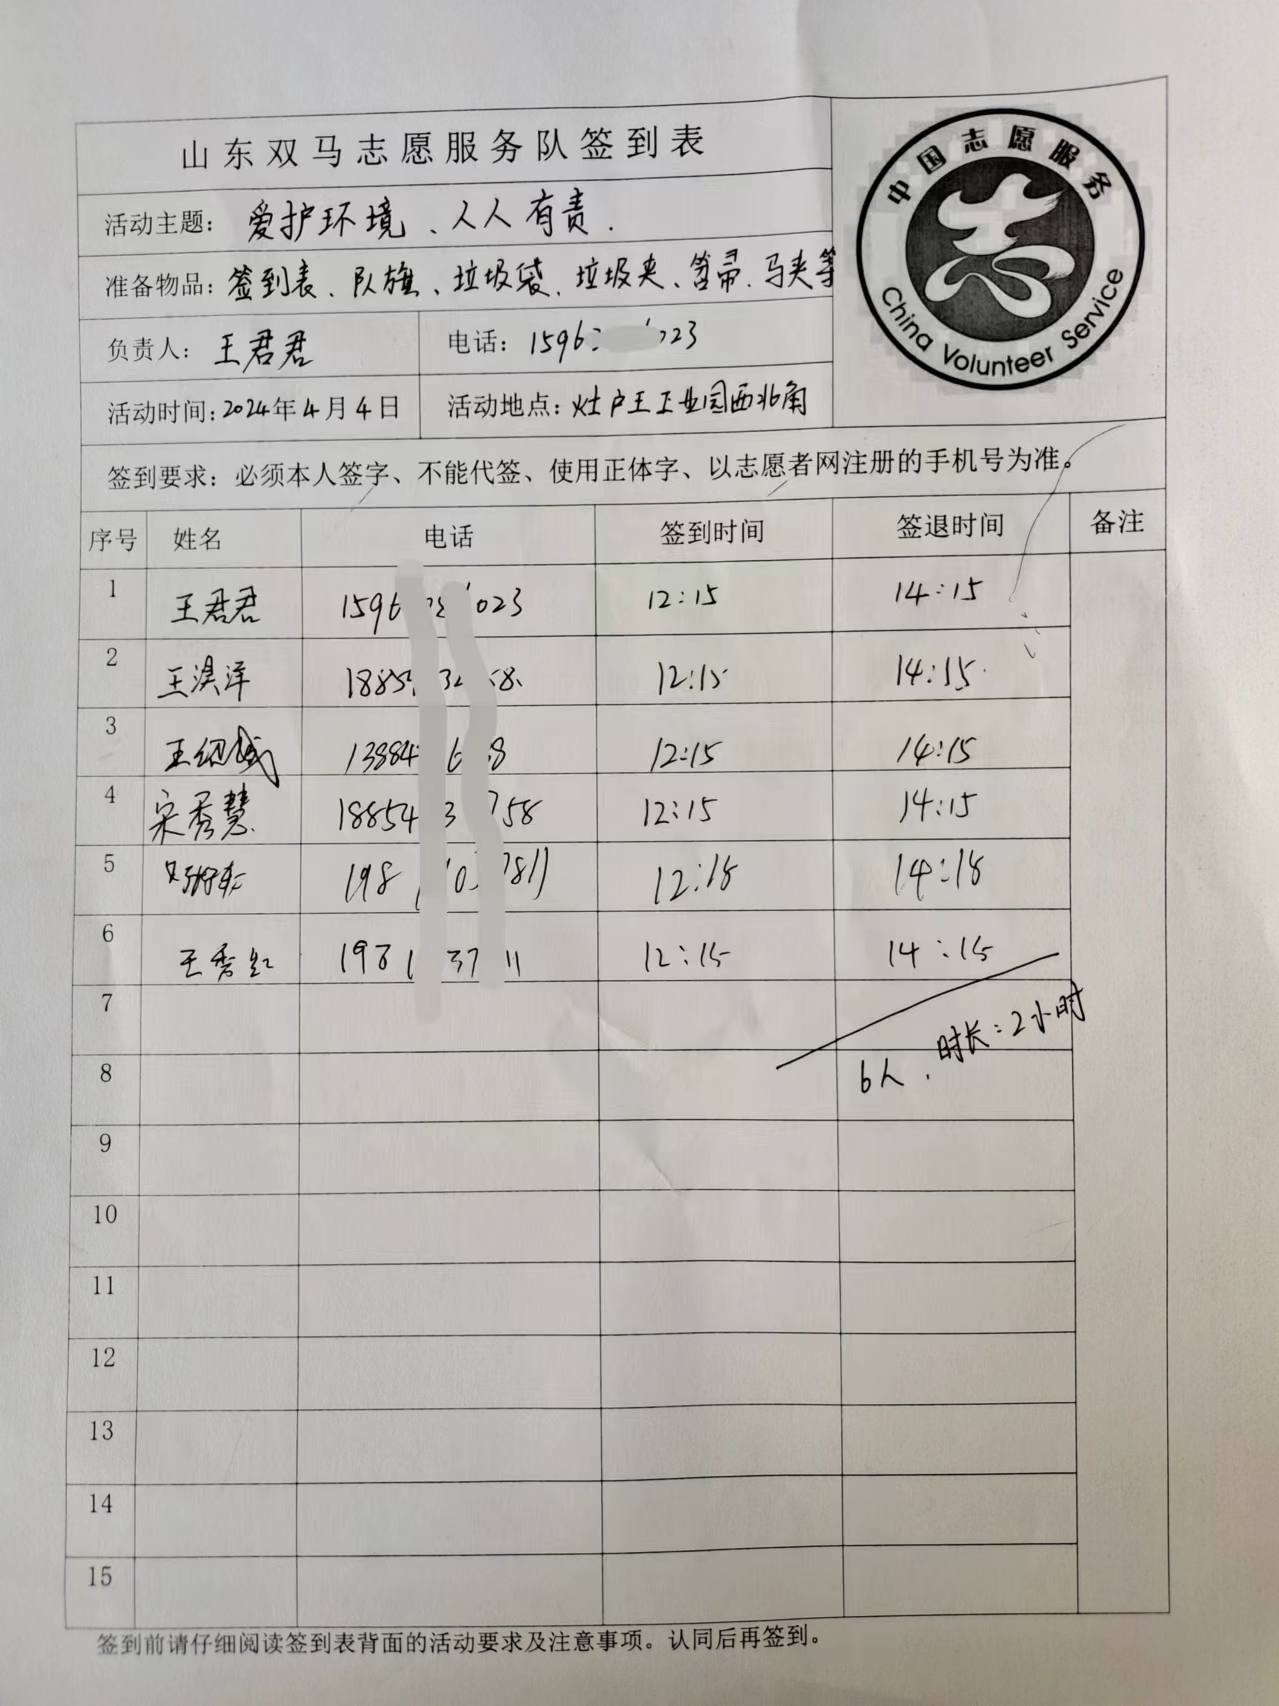 山东双马志愿服务队签到表
中国志愿服务
China Volunteer Service
活动主题：爱护环境、人人有责.
准备物品：签到表、队旗、垃圾袋、垃圾夹、笤帚、马夹等
负责人：王君君 电话：1596 023
活动时间：2024年4月4日 活动地点：灶户王工业园西北角
签到要求：必须本人签字、不能代签、使用正体字、以志愿者网注册的手机号为准。
序号 姓名 电话 签到时间 签退时间 备注
1 王君君 1596 023 12:15 14:15
2 王淏洋 1885 32 8 12:15 14:15
3 13884 6 8 12:15 14:15
4 宋秀慧 18854 3 758 12:15 14:15
5 198 10 7811 12:18 14:18
6 王秀红 1981 37 11 12:15 14:15
7
6人，时长：2小时
8
9
10
11
12
13
14
15
签到前请仔细阅读签到表背面的活动要求及注意事项。认同后再签到。